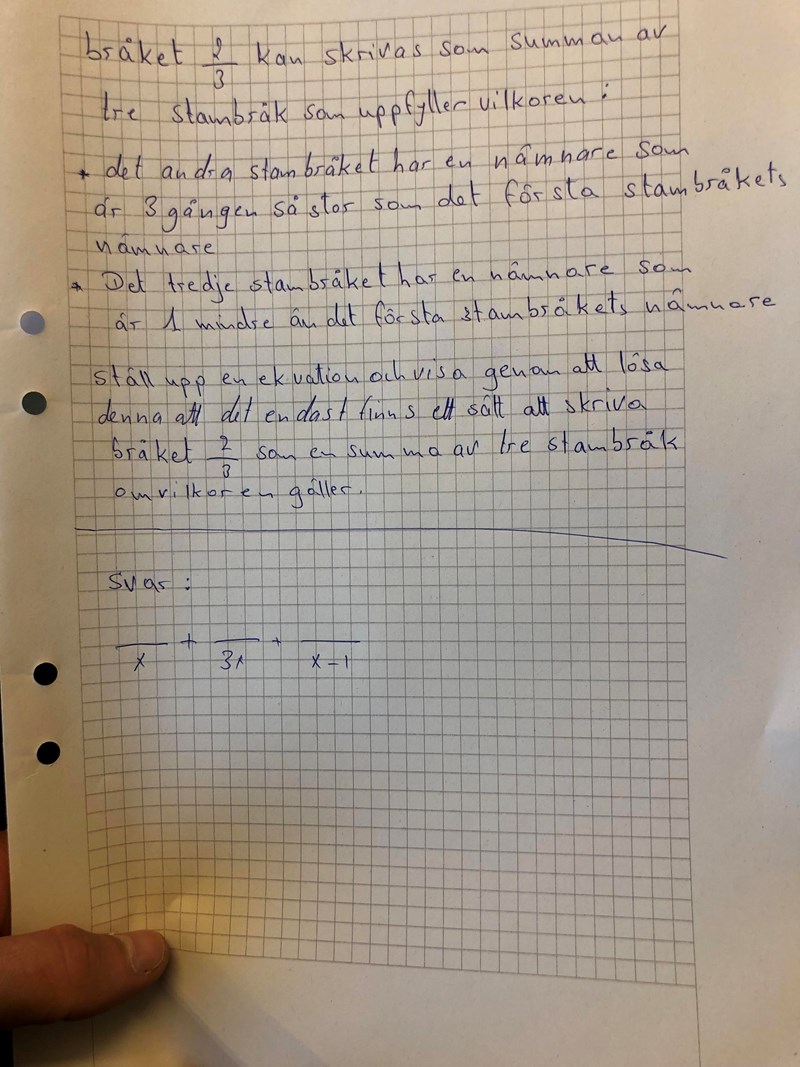 bråket 2/3 kan skrivas som summan av
tre stambråk som uppfyller vilkoren:
* det andra stambråket har en nämnare som
är 3 gången så stor som det första stambråkets
nämnare
* Det tredje stambråket har en nämnare som
är 1 mindre än det första stambråkets nämnare
ställ upp en ekvation och visa genom att lösa
denna att det endast finns ett sätt att skriva
bråket 2/3 som en summa av tre stambråk
om vilkoren gäller.
Svar:
/x + /3x + /x-1